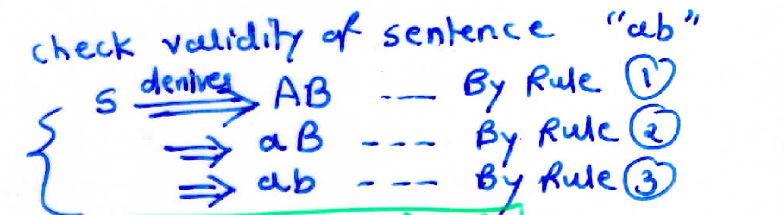 check validity of sentence "ab"
S derives ⇒ AB --- By Rule ①
⇒ aB ---- By Rule ②
⇒ ab --- By Rule ③